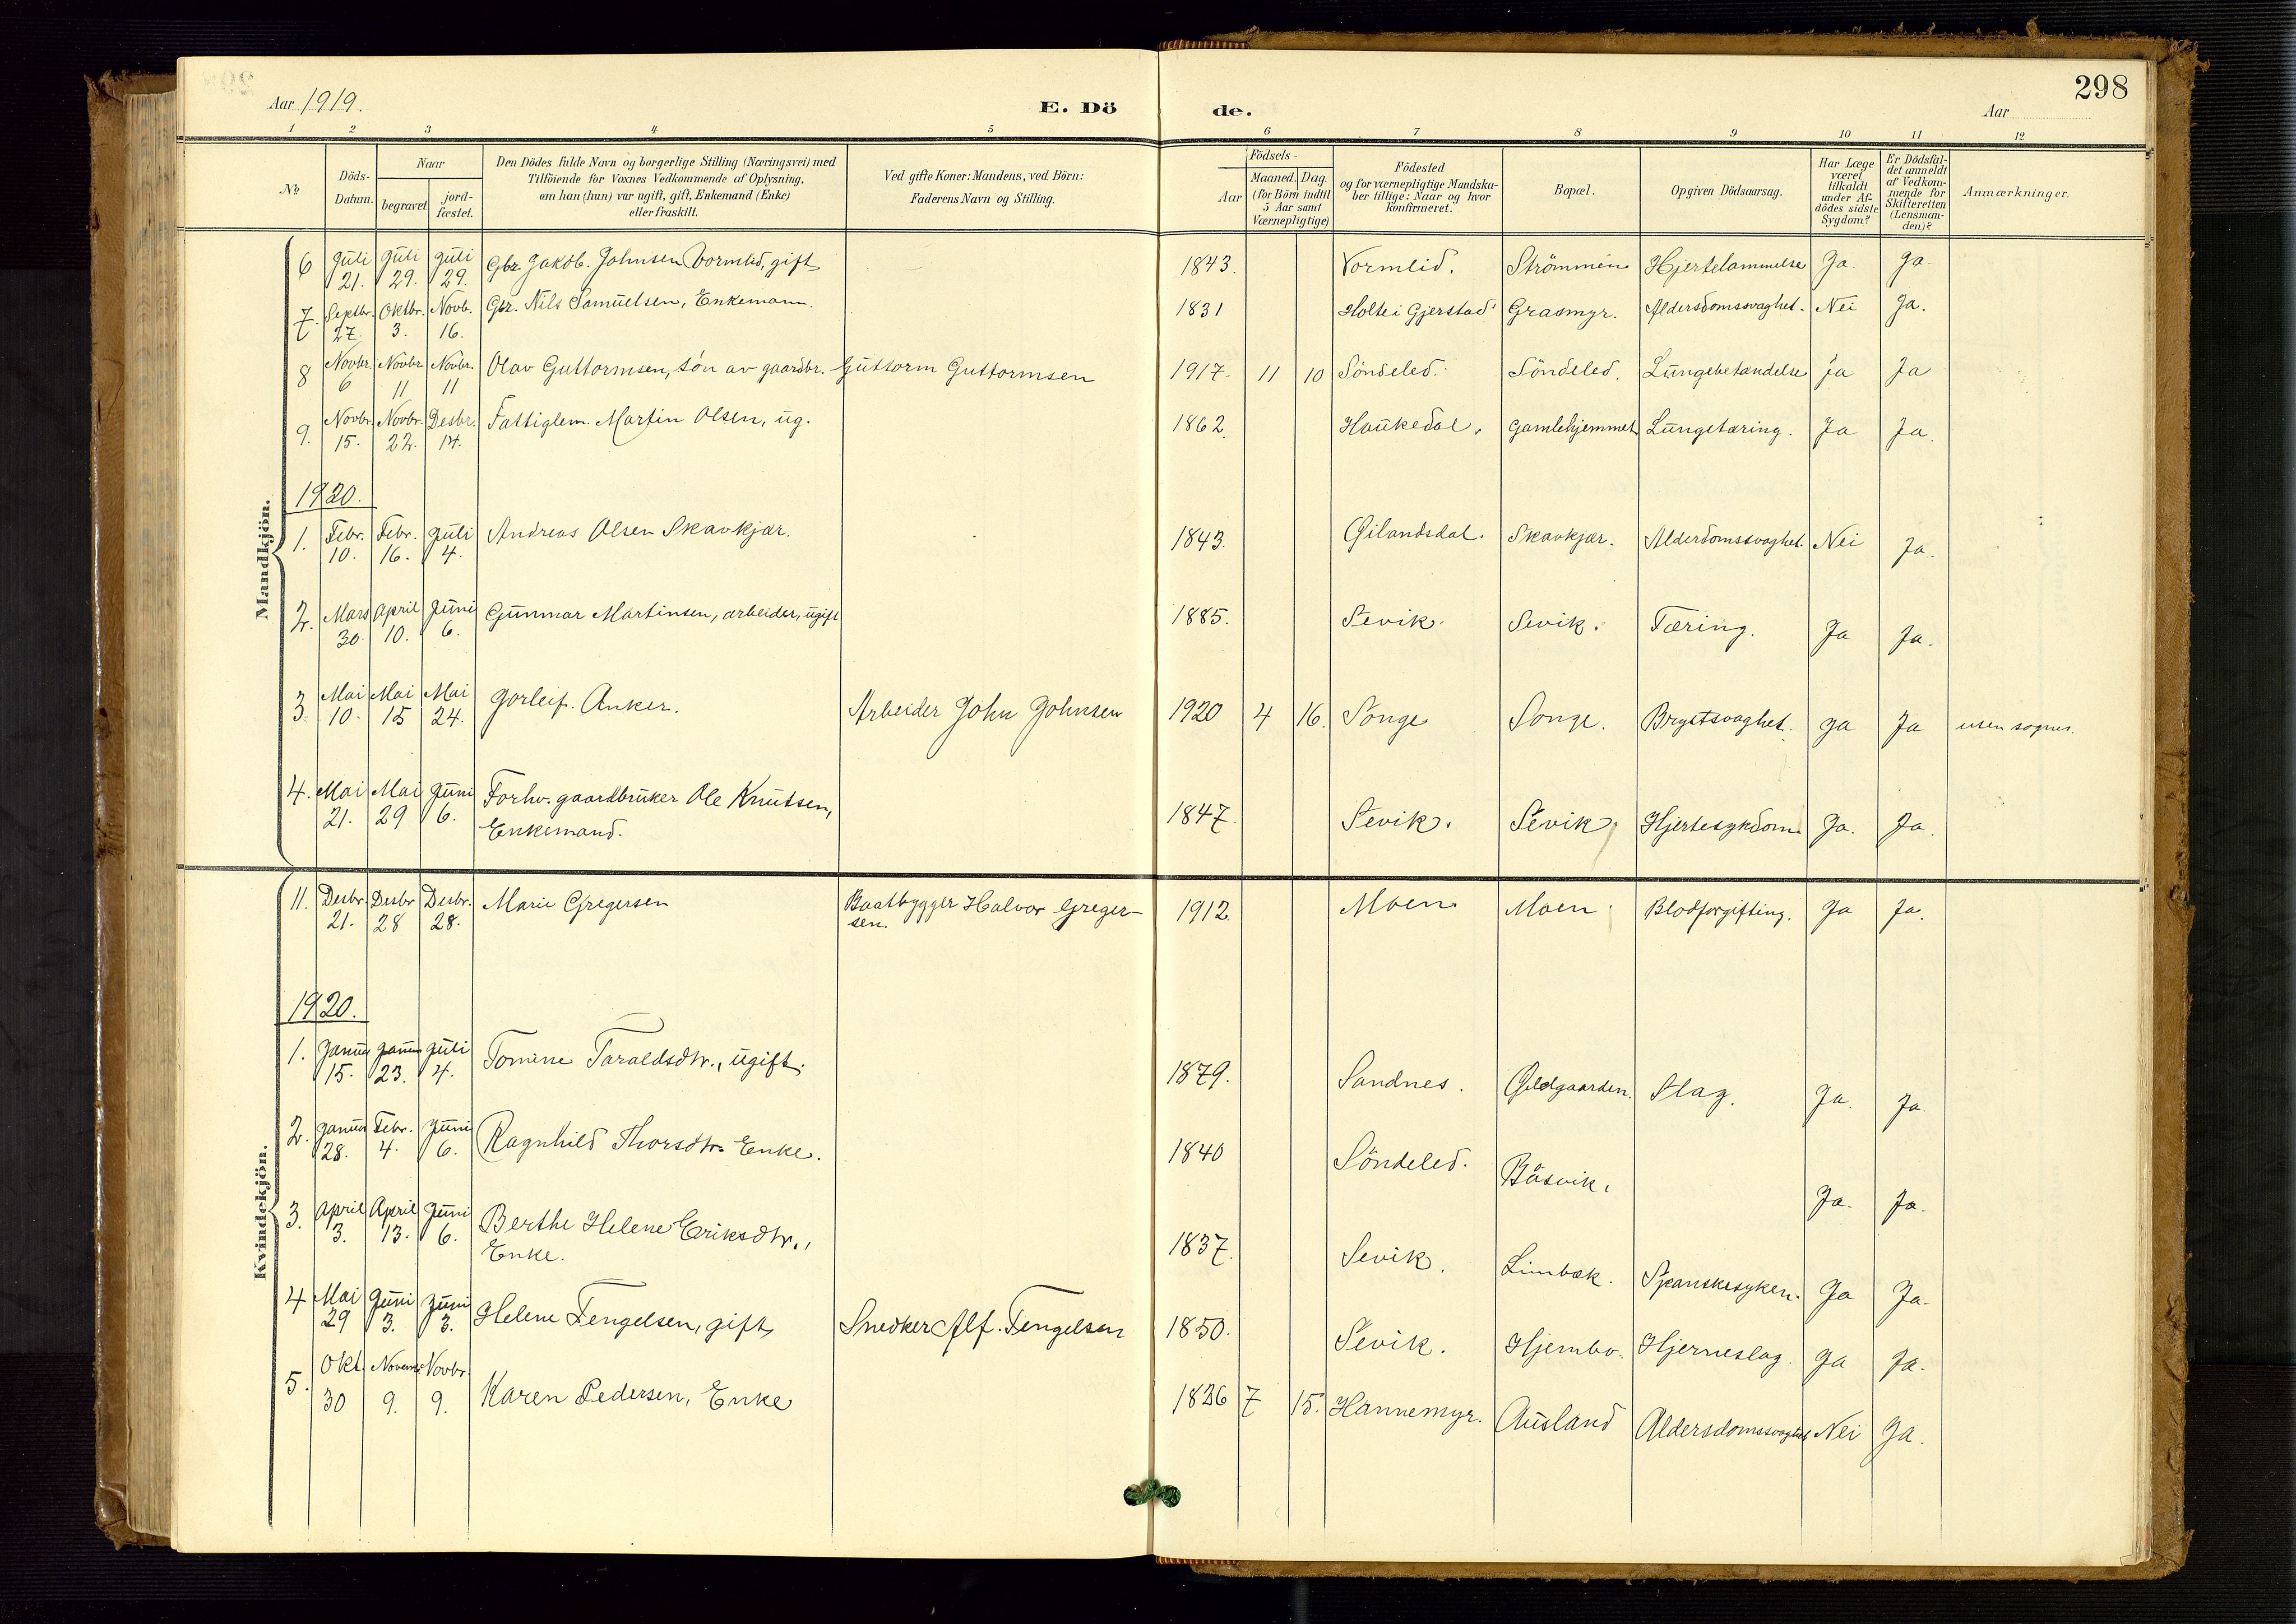 298
Aar 1919.
E. Dö de.
Aar
1 2 3 4 5 6 7 8 9 10 11 12
No.
Döds-Datum.
Naar
begravet
jord-fæstet.
Den Dödes fulde Navn og borgerlige Stilling (Næringsvei) med
Tilföiende for Voxnes Vedkommende af Oplysning,
om han (hun) var ugift, gift, Enkemand (Enke)
eller fraskilt.
Ved gifte Koner: Mandens, ved Börn:
Faderens Navn og Stilling.
Födsels-
Aar
Maaned. Dag.
(for Börn indtil
5 Aar samt
Værnepligtige)
Födested
og for værnepligtige Mandska-
ber tillige: Naar og hvor
konfirmeret.
Bopæl.
Opgiven Dödsaarsag.
Har Læge
været
tilkaldt
under Af-
dödes sidste
Sygdom?
Er Dödsfal-
det anmeldt
af Vedkom-
mende for
Skifteretten
(Lensman-
den)?
Anmærkninger.
Mandkjön.
6 Juli 21. Juli 29. Juli 29. Gbr. Jakob Johnsen Vormlid, gift 1843. Vormlid. Strömmen Hjertelammelse Ja. Ja
7. Septbr. 27. Oktbr. 3. Novb. 16. Gbr. Nils Samuelsen, Enkemann. 1831 Holte i Gjerstad Grasmyr. Aldersdomssvaghet. Nei Ja.
8 Novbr. 6 Novbr 11 Novbr. 11 Olav Guttormsen, sön av gaardbr. Guttorm Guttormsen 1917. 11 10 Söndeled. Söndeled. Lungebetændelse Ja Ja
9. Novbr. 15. Novbr. 22. Desbr. 14. Fattiglem. Martin Olsen, ug. 1862. Haukedal. Gamlehjemmet Lungetæring. Ja Ja.
1920.
1. Febr. 10. Febr. 16. Juli 4. Andreas Olsen Skavkjær. 1843. Gilandsdal. Skavkjær. Alderdomssvaghet. Nei Ja.
2. Mars 30. April 10. Juni 6. Gunnar Martinsen, arbeider, ugift 1885. Sevik. Sevik. Tæring. Ja Ja.
3. Mai 10. Mai 15 Mai 24. Gorleif Anker. Arbeider John Johnsen 1920 4 16. Songe Songe. Brystsvaghet. Ja Ja uten sogner.
4. Mai 21. Mai 29 Juni 6. Forhv. gaardbruker Ole Knutsen,
Enkemand. 1847. Sevik. Sevik. Hjertesykdom Ja. Ja.
Kvindekjön.
11. Desbr. 21. Desbr 28 Desbr. 28. Marie Gregersen Baatbygger Halvor Greger-
sen. 1912. Moen Moen. Blodforgifting. Ja Ja.
1920.
1. Januar 15. Januar 23. Juli 4. Tomine Taraldsdtr., ugift. 1879. Sandnes. Gildgaarden. Slag. Ja. Ja.
2. Januar 28. Febr. 4. Juni 6. Ragnhild Thorsdtr. Enke. 1840 Söndeled. Båsvik. Ja. Ja.
3. April 3. April 13. Juni 6. Berthe Helene Eriksdtr.,
Enke. 1837. Sevik. Limbæk. Spanskesyken. Ja Ja.
4 Mai 29 Juni 3. Juni 3. Helene Tengelsen, gift Snedker Alf. Tengelsen 1850. Sevik. Hjembo. Hjerneslag. Ja Ja.
5. Okt. 30 Novem 9. Novbr. 9. Karen Pedersen, Enke 1836 7 15. Hannemyr. Ausland Aldersdomssvaghet Nei Ja.